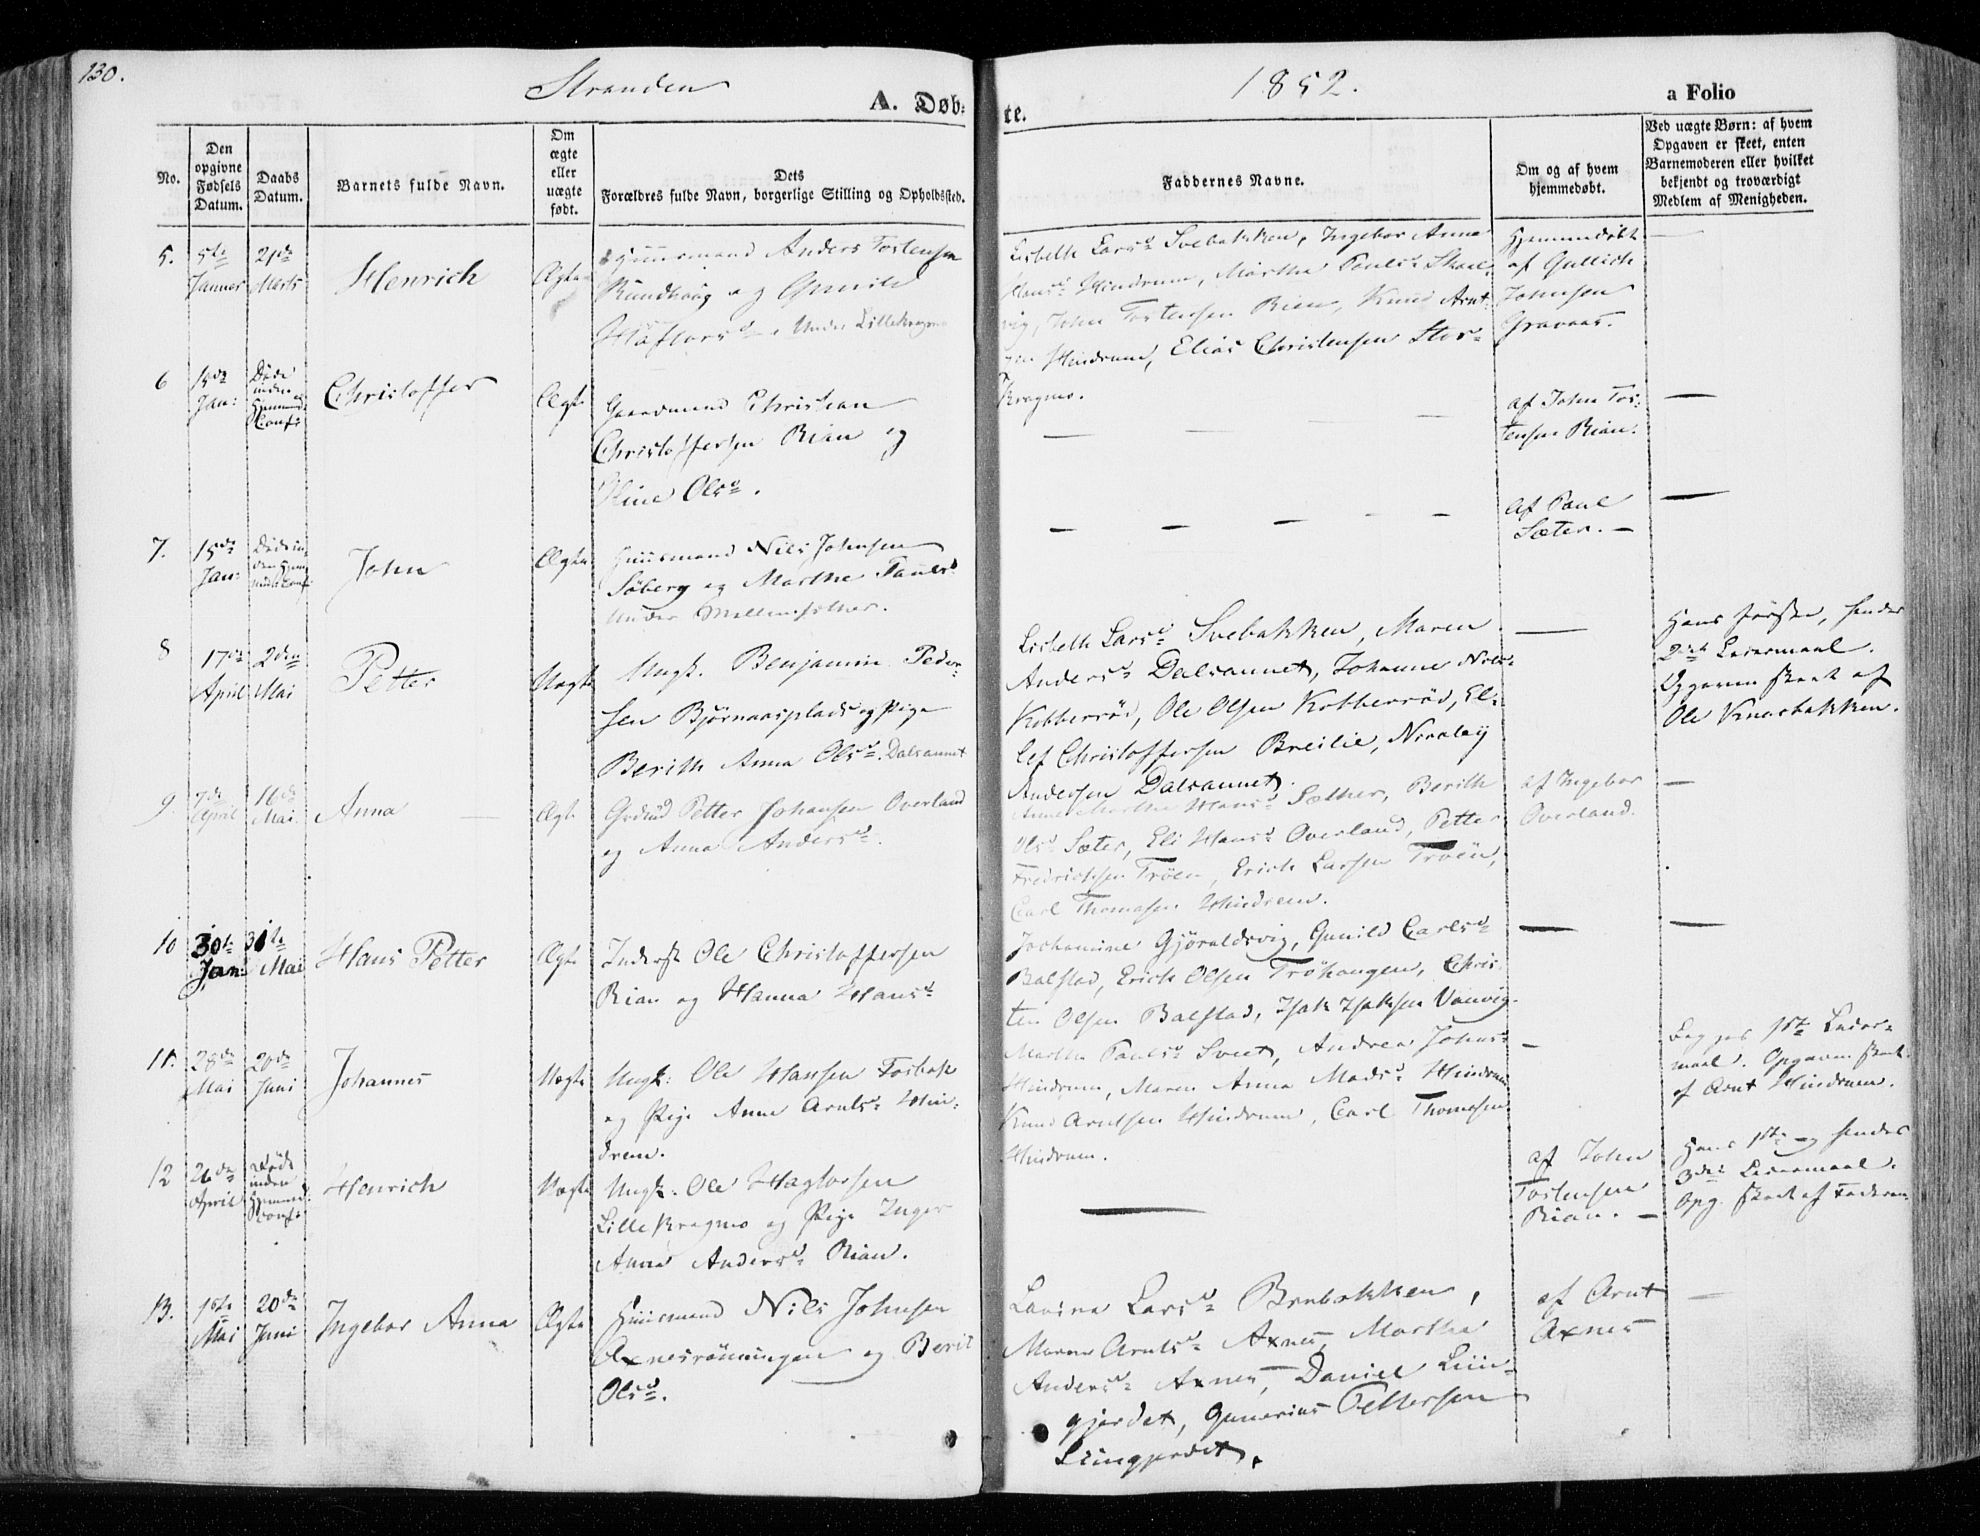 130.
Stranden
A. Døb:
te.
1852.
a Folio
No.
Den opgivne Fødsels Datum.
Daabs Datum.
Barnets fulde Navn.
Om ægte eller uægte født.
Dets
Forældres fulde Navn, borgerlige Stilling og Opholdssted.
Faddernes Navne.
Om og af hvem hjemmedøbt.
Ved uægte Børn: af hvem
Opgaven er skeet, enten
Barnemoderen eller hvilket
bekjendt og troværdigt
Medlem af Menigheden.
5.
5te Januar
21de Marts
Henrich
Ægte
Huusmand Anders Tostensen
Rundhaug og Gunild
under Lillekragmo
Lisbeth Larsd Svebakken, Ingebor Anna
Hansd Hindrum, Martha Paulsd
vig, John Tostensen Rian, Knud Arnt
sen Hindrum, Elias Christensen Stor-
kragmo.
Hjemmedøbt
af Gullich
Johnsen
Gravaas.
6
Jan:
Døde
inden
Christoffer
Ægte
Gaardmand Christian
Christoffersen Rian og
Stine Olsd.
af John Tos-
tensen Rian.
7.
15de Jan:
John
Ægte
Huusmand Nils Johnsen
Søberg og Marthe Paulsd
under
af Paul
Sæter.
8
17de April
2den Mai
Petter
Uægte
Ungk. Benjamin Peder-
sen Bjørnaasplads og Pige
Berith Anna Olsd. Dalsaunet
Lisbeth Larsd Svebakken, Maren
Andersd Dalsaunet, Johanne Nils-
Kobberrød, Ole Olsen Kobberrød, El-
lef Christoffersen Breilie, Nicolay
Andersen Dalsaunet.
Hans første, hendes
2det Leiermaal.
Opgaven skeet af
Ole
9.
7de April
16de Mai
Anna
Ægte
Grdmd Petter Johansen Overland
og Anna Andersd.
Anne Martha Hansd Sæther, Berith
Olsd Sæter, Eli Hansd Overland, Petter
Fredrichsen Trøen, Erich Larsen Trøen,
Carl Thomasen Hindrem.
af Ingebor
Overland.
10
30te Jan:
31te Mai
Hans Petter
Ægte
Inderst Ole Christoffersen
Rian og Hanna Hansd
Jochamine Gjøraldsvig, Gunild Carlsd
Balstad, Erich Olsen Trøhaugen, Chris-
ten Olsen Balstad, Isak Isaksen Vanvig.
11.
28de Mai
20de Juni
Johannes
Uægte
Ungk: Ole Hansen Fosbak
og Pige Anne Arntsd Hin-
drem.
Martha Paulsd Sveet, Andrea Johns-
Hindrum, Maren Anna Madsd Hindrum
Knud Arntsen Hindrum, Carl Thomasen
Hindrum.
Begges 1ste Leier-
maal. Opgaven skeet
af Arnt Hindrum.
12
26de April
Døde
inden
Henrich
Uægte
Ungk. Ole Hagtorsen
Lillekragmo og Pige Inger
Anna Andersd Rian.
af John
Tostensen
Rian.
Hans 1ste og hendes
3die Leiermaal.
Opg. skeet af Faderen
13.
1ste Mai
20de Juni
Ingebor Anna
Ægte
Huusmand Nils Johnsen
Axnesrønningen og Berit
Olsd.
Lavina Larsd Brebakken,
Maren Arntsd Axnes, Martha
Andersd Axnes, Daniel Liin-
gjerdet, Gunerius Pettersen
Liingjerdet.
af Arnt
Axnes